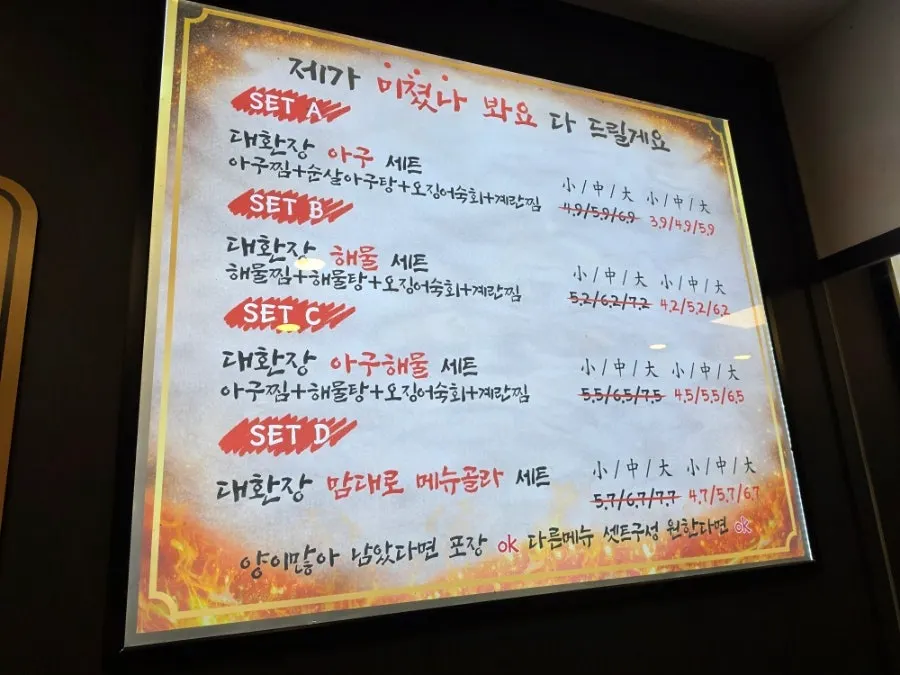 제가 미쳤나 봐요 다 드릴게요
SET A
대환장 아구 세트
아구찜+순살아구탕+오징어숙회+계란찜
小/中/大 小/中/大
4.9/5.9/6.9 3.9/4.9/5.9
SET B
대환장 해물 세트
해물찜+해물탕+오징어숙회+계란찜
小/中/大 小/中/大
5.2/6.2/7.2 4.2/5.2/6.2
SET C
대환장 아구해물 세트
아구찜+해물탕+오징어숙회+계란찜
小/中/大 小/中/大
5.5/6.5/7.5 4.5/5.5/6.5
SET D
대환장 맘대로 메뉴골라 세트
小/中/大 小/中/大
5.7/6.7/7.7 4.7/5.7/6.7
양이많아 남았다면 포장 ok 다른메뉴 셋트구성 원한다면 ok